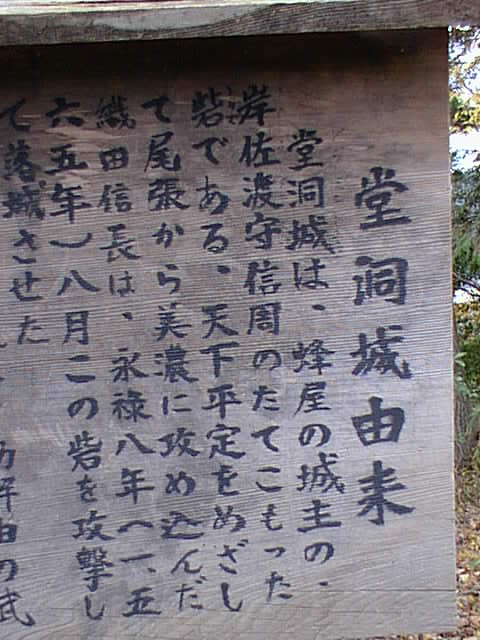 堂洞城由来
堂洞城は、蜂屋の城主の、
岸佐渡守信周のたてこもった
砦である、天下平定をめざし
て尾張から美濃に攻め込んだ
織田信長は、永禄八年(一、五
六五年)八月この砦を攻撃し
て落城させた